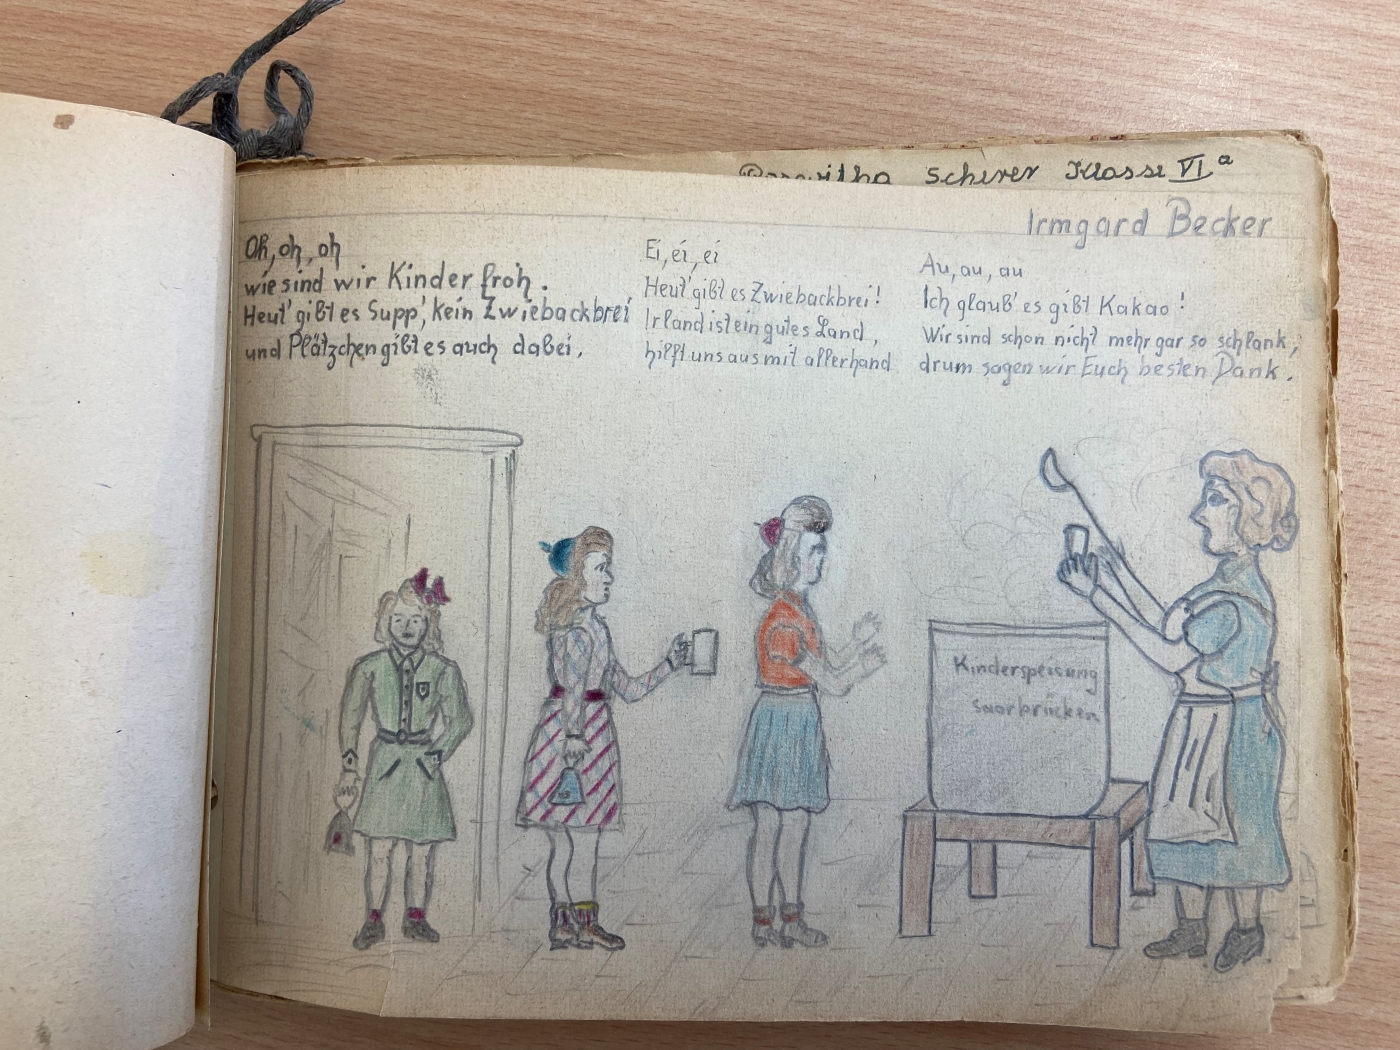 Roswitha Scherer Klasse VI a
Irmgard Becker
Oh, oh, oh
wie sind wir Kinder froh.
Heut' gibt es Supp', kein Zwiebackbrei
und Plätzchen gibt es auch dabei.
Ei, ei, ei
Heut' gibt es Zwiebackbrei!
Irland ist ein gutes Land,
hilft uns aus mit allerhand
Au, au, au
Ich glaub' es gibt Kakao!
Wir sind schon nicht mehr gar so schlank,
drum sagen wir Euch besten Dank.
Kinderspeisung
Saarbrücken